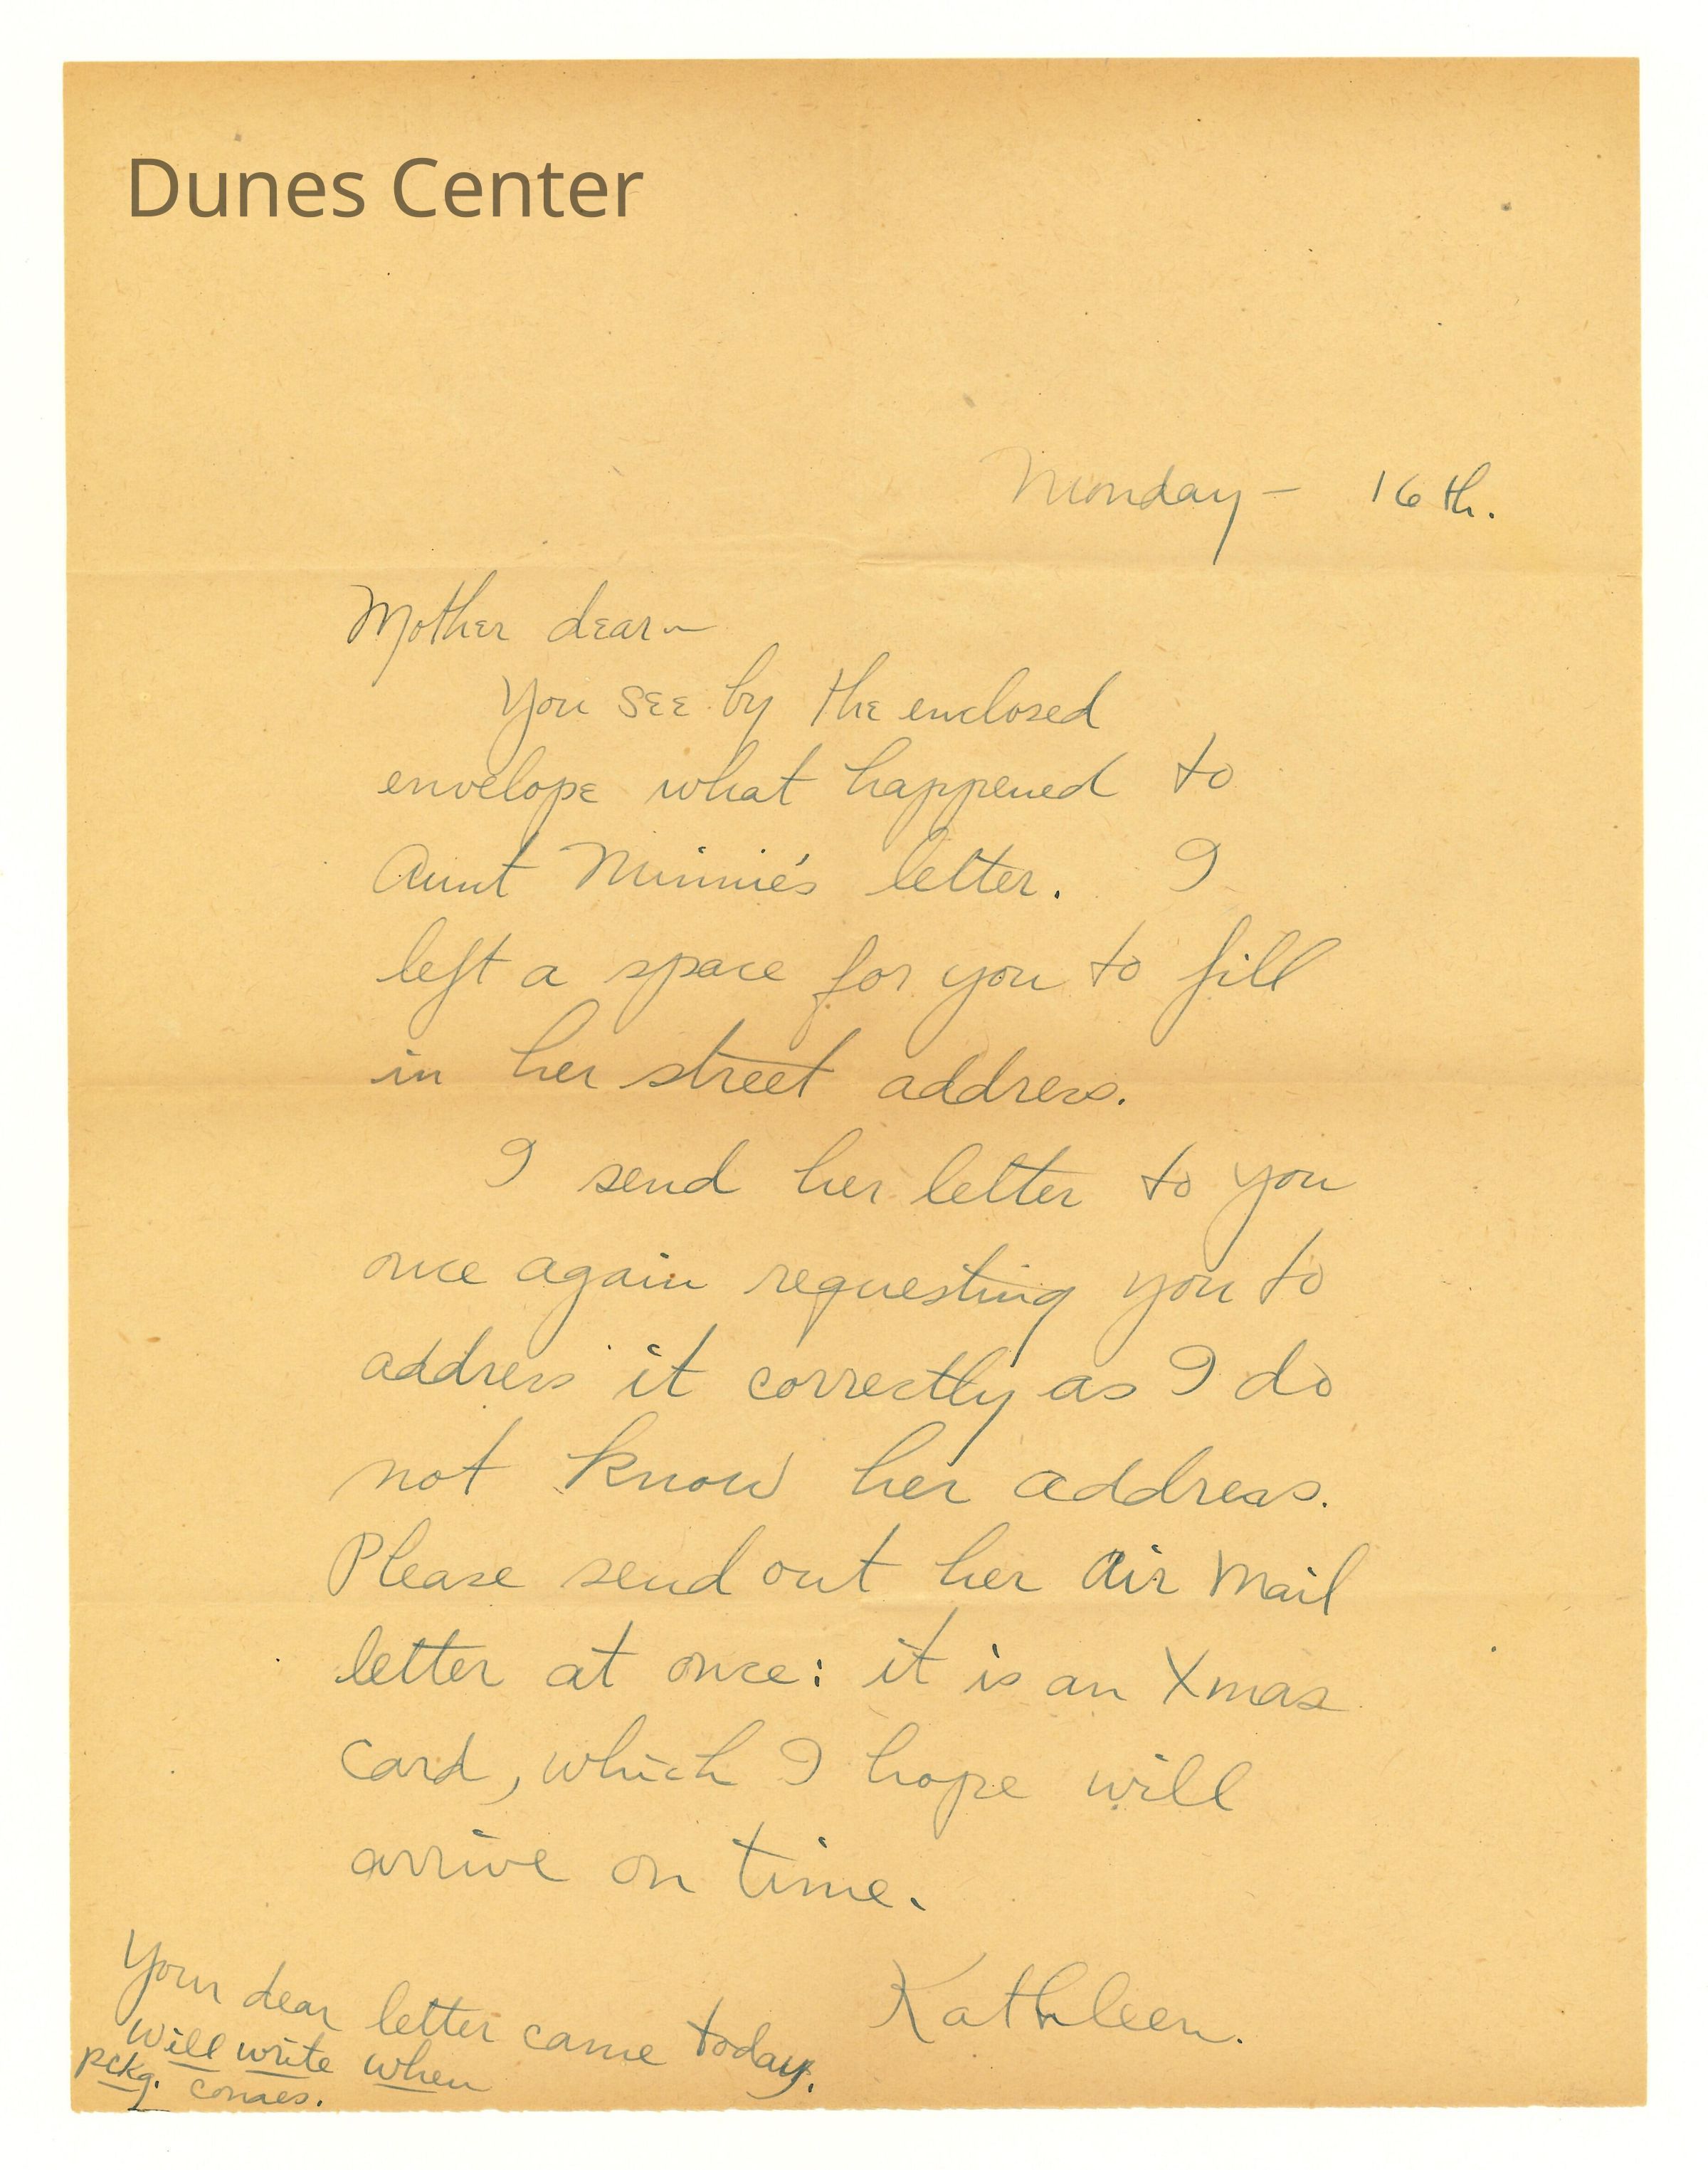 Dunes Center
Monday – 16th.
Mother dear~
You see by the enclosed
envelope what happened to
Aunt Minnie's letter. I
left a space for you to fill
in her street address.
I send her letter to you
once again requesting you to
address it correctly as I do
not know her address.
Please send out her Air Mail
letter at once: it is an Xmas
card, which I hope will
arrive on time.
Kathleen.
Your dear letter came today.
Will write when
pckg. comes.